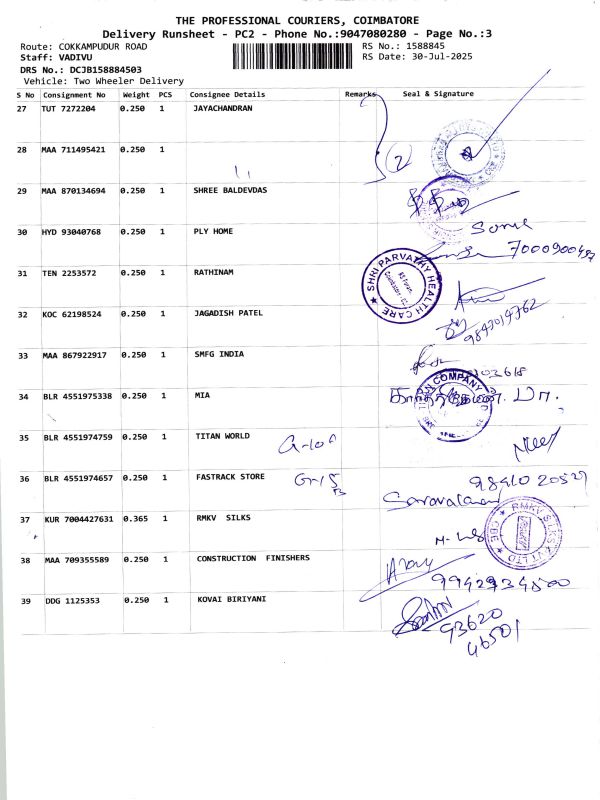 THE PROFESSIONAL COURIERS, COIMBATORE
Delivery Runsheet - PC2 - Phone No.:9047080280 - Page No.:3
Route: COKKAMPUDUR ROAD RS No.: 1588845
Staff: VADIVU RS Date: 30-Jul-2025
DRS No.: DCJB158884503
Vehicle: Two Wheeler Delivery
S No Consignment No Weight PCS Consignee Details Remarks Seal & Signature
27 TUT 7272204 0.250 1 JAYACHANDRAN
28 MAA 711495421 0.250 1
2
29 MAA 870134694 0.250 1 SHREE BALDEVDAS
30 HYD 93040768 0.250 1 PLY HOME
31 TEN 2253572 0.250 1 RATHINAM
SHRI PARVATHY HEALTH CARE
32 KOC 62198524 0.250 1 JAGADISH PATEL
33 MAA 867922917 0.250 1 SMFG INDIA
34 BLR 4551975338 0.250 1 MIA
35 BLR 4551974759 0.250 1 TITAN WORLD
36 BLR 4551974657 0.250 1 FASTRACK STORE G-15
Saravanan
37 KUR 7004427631 0.365 1 RMKV SILKS
RMKV SILKS PVT LTD CBE
38 MAA 709355589 0.250 1 CONSTRUCTION FINISHERS
39 DDG 1125353 0.250 1 KOVAI BIRIYANI
93620
46501